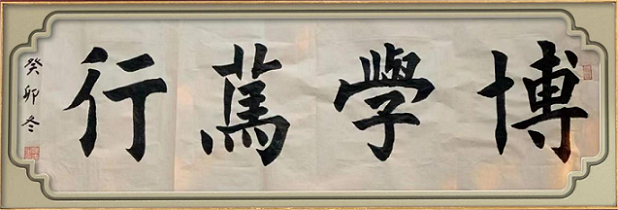 博學篤行
癸卯冬